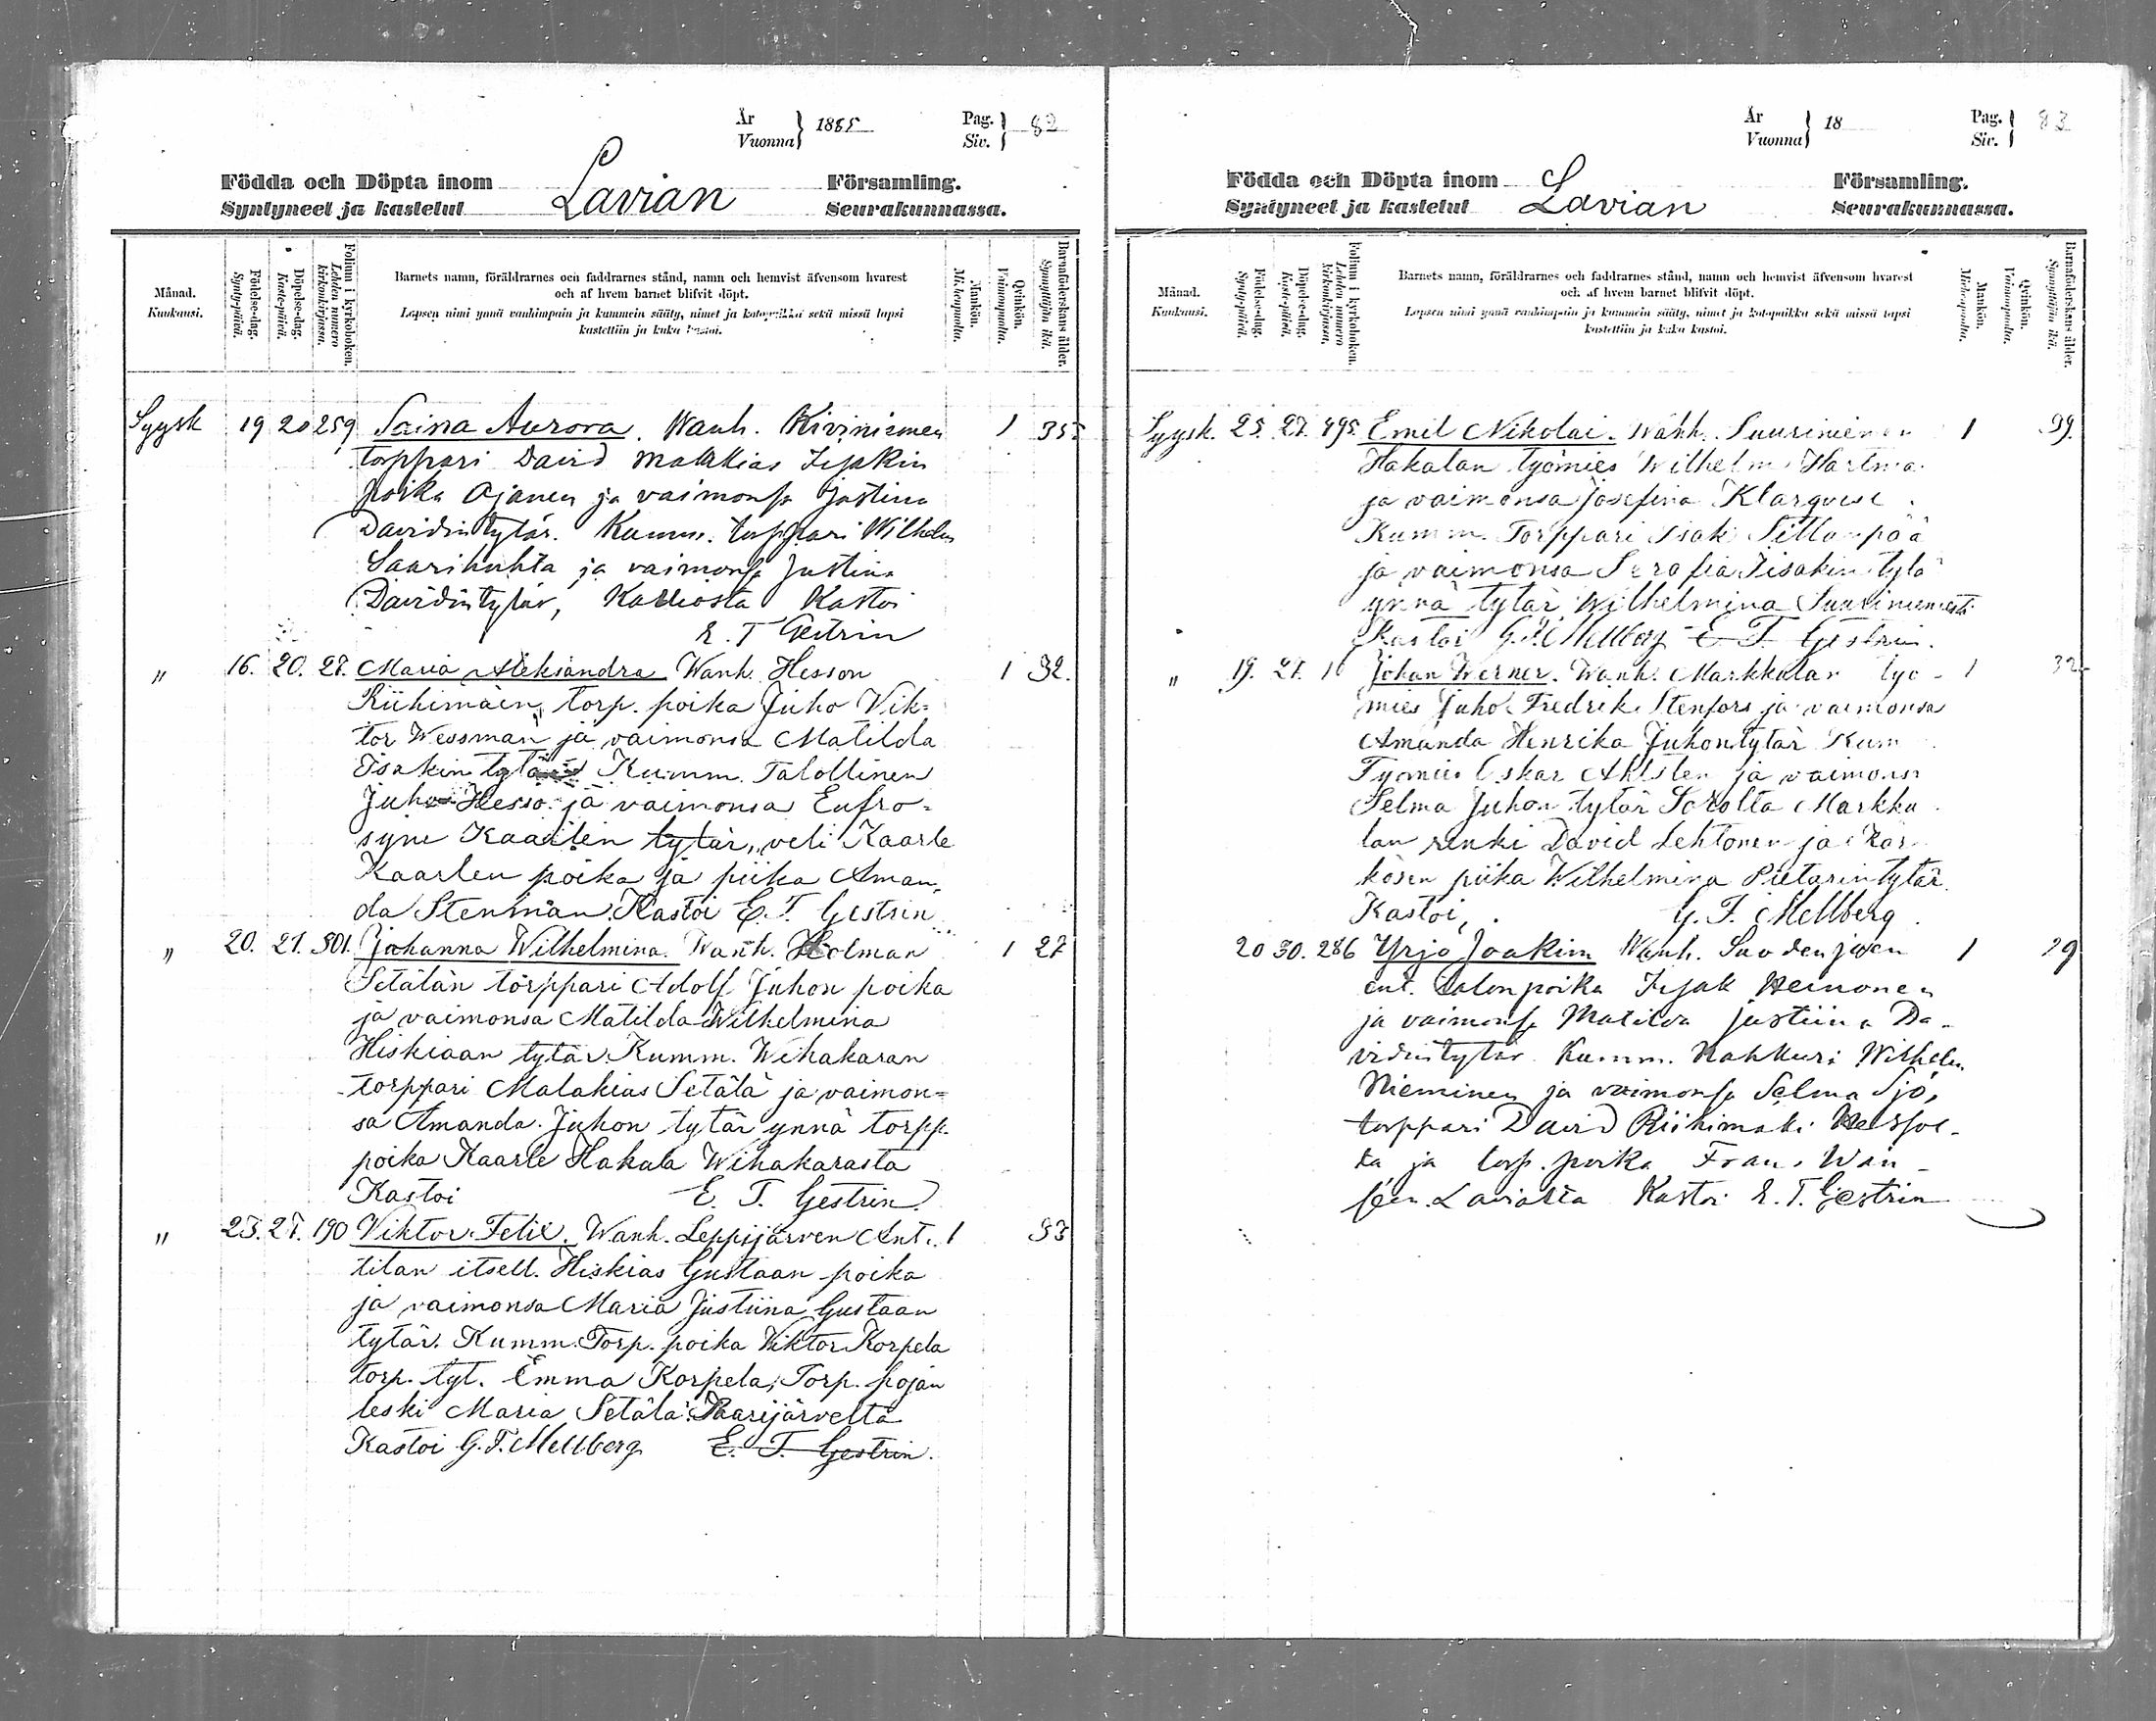 År
Vuonna } 1885
Pag.
Siv. } 82
Födda och Döpta inom Lavian Församling.
Syntyneet ja kastetut Seurakunnassa.
Månad.
Kuukausi.
Födelse-dag.
Synty-päivä.
Döpelse-dag.
Kaste-päivä.
Folium i kyrkoboken.
Lehden numero kirkonkirjassa.
Barnets namn, föräldrarnes och faddrarnes stånd, namn och hemvist äfvensom hvarest
och af hvem barnet blifvit döpt.
Lapsen nimi ynnä vanhimpain ja kummein sääty, nimet ja kotopaikka sekä missä lapsi
kastettiin ja kuka kastoi.
Mankön.
Miehenpuolia.
Qvinkön.
Vaimonpuolia.
Barnaföderskans ålder.
Synnyttäjän ikä.
Syysk 19 20 259 Saima Aurora. Wanh. Kiviniemen 1 35
torppari David Malakias Isakin
poika Ojanen ja vaimonsa Justina
Davidintytär. Kumm. torppari Wilhelm
Saarihuhta ja vaimonsa Justina
Davidintytär, Kalliosta Kastoi
E. T Gestrin
" 16. 20. 27. Maria Aleksandra Wanh. Hesson 1 32.
Riihimäen torp. poika Juho Vik=
tor Wessman ja vaimonsa Matilda
Isakin tytär Kumm. Talollinen
Juho Hesso ja vaimonsa Eufro=
syne Kaarlen tytär, veli Kaarle
Kaarlen poika ja piika Aman
da Stenman. Kastoi E. T. Gestrin
" 20. 27. 301. Johanna Wilhelmina. Wanh. Holman 1 27
Setälän torppari Adolf Juhon poika
ja vaimonsa Matilda Wilhelmina
Hiskiaan tytär. Kumm. Wihakaran
torppari Malakias Setälä ja vaimon=
sa Amanda Juhon tytär ynnä torpp.
poika Kaarle Hakala Wihakarasta
Kastoi E. T. Gestrin
" 23. 27. 190 Viktor Felix. Wanh. Leppijärven Ant. 1 33
tilan itsell. Hiskias Gustaan poika
ja vaimonsa Maria Justiina Gustaan
tytär. Kumm. Torp. poika Viktor Korpela
torp. tyt. Emma Korpela, Torp. pojan
leski Maria Setälä Haarijärveltä
Kastoi G. F. Mellberg E. T. Gestrin.
År
Vuonna } 18
Pag.
Siv. } 83
Födda och Döpta inom Lavian Församling.
Syntyneet ja kastetut Seurakunnassa.
Månad.
Kuukausi.
Födelse-dag.
Synty-päivä.
Döpelse-dag.
Kaste-päivä.
Folium i kyrkoboken.
Lehden numero kirkonkirjassa.
Barnets namn, föräldrarnes och faddrarnes stånd, namn och hemvist äfvensom hvarest
och af hvem barnet blifvit döpt.
Lapsen nimi ynnä vanhimpain ja kummein sääty, nimet ja kotopaikka sekä missä lapsi
kastettiin ja kuka kastoi.
Mankön.
Miehenpuolia.
Qvinkön.
Vaimonpuolia.
Barnaföderskans ålder.
Synnyttäjän ikä.
Syysk. 25. 27. 395. Emil Nikolai. Wanh. Suuriniemen 1 39.
Hakalan työmies Wilhelm Hartma
ja vaimonsa Josefina Klarqvist
Kumm. Torppari Isak Sillanpää
ja vaimonsa Serafia Iisakin tytä
ynnä tytär Wilhelmina Suuriniemestä
Kastoi G. F. Mellberg E. T. Gestrin.
" 19. 27. 10 Johan Werner. Wanh. Markkulan työ- 1 32
mies Juho Fredrik Stenfors ja vaimonsa
Amanda Henrika Juhontytär Kum
Työmies Oskar Ahlsten ja vaimonsa
Selma Juhon tytär Markku
lan renki David Lehtonen ja Kar
kösen piika Wilhelmina Pietarintytär.
Kastoi, G. F. Mellberg.
20 30. 286 Yrjö Joakim Wanh. Suodenjoen 1 29
ent. talonpoika Isak Heinonen
ja vaimonsa Matilda Justiina Da-
vidintytär. Kumm. Nahkuri Wilhelm
Nieminen ja vaimonsa Selma Sjö,
torppari David Riihimäki Hesson-
ta ja torp. poika Frans Wän-
Laviasta Kastoi E. T. Gestrin